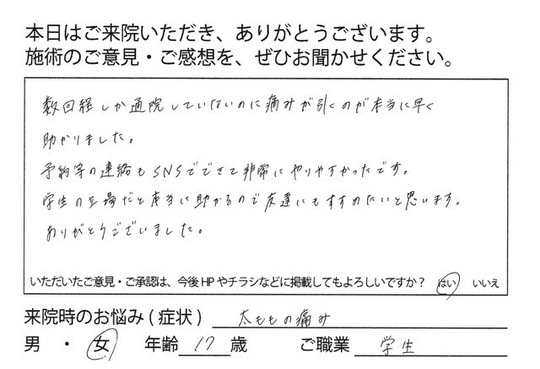 本日はご来院いただき、ありがとうございます。
施術のご意見・ご感想を、ぜひお聞かせください。
数回程しか通院していないのに痛みが引くのが本当に早く
助かりました。
予約等の連絡もSNSでできて非常にやりやすかったです。
学生の立場だと本当に助かるので友達にもすすめたいと思います。
ありがとうございました。
いただいたご意見・ご承認は、今後HPやチラシなどに掲載してもよろしいですか? はい いいえ
来院時のお悩み(症状) 太ももの痛み
男 ・ 女 年齢 17 歳 ご職業 学生